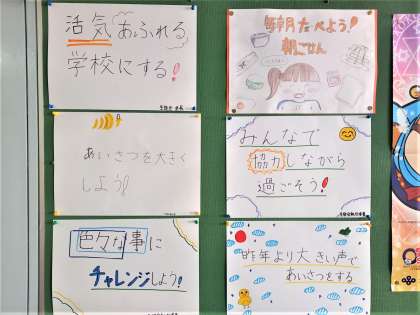 活気あふれる
学校にする!
毎朝たべよう!
朝ごはん
あいさつを大きく
しよう!
みんなで
協力しながら
過ごそう!
色々な事に
チャレンジしよう!
昨年より大きい声で
あいさつをする